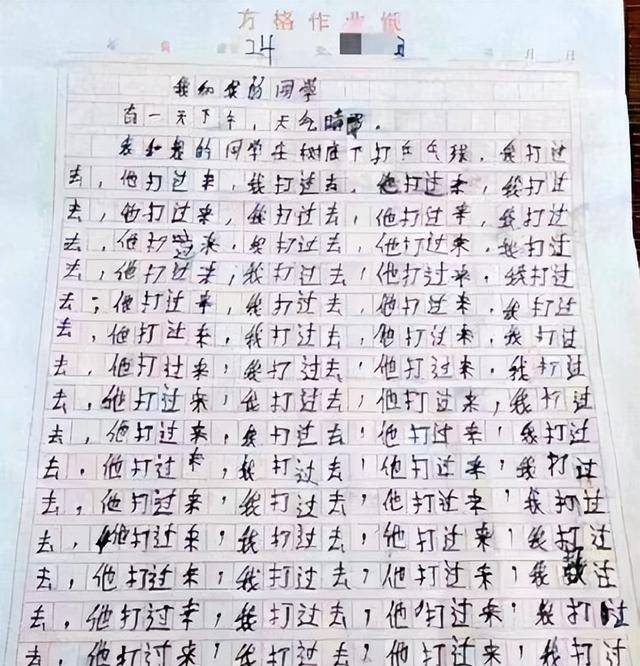 方格作业纸
24
月 日
我和我的同学
有一天下午，天气晴
我和我的同学在树底下打乒乓球，我打过
去，他打过来，我打过去，他打过来，我打过
去，他打过来，我打过去，他打过来，我打过
去，他打过来，我打过去，他打过来，我打过
去，他打过来，我打过去，他打过来，我打过
去，他打过来，我打过去，他打过来，我打过
去，他打过来，我打过去，他打过来，我打过
去，他打过来，我打过去，他打过来，我打过
去，他打过来，我打过去，他打过来，我打过
去，他打过来，我打过去，他打过来，我打过
去，他打过来，我打过去，他打过来，我打过
去，他打过来，我打过去，他打过来，我打过
去，他打过来，我打过去，他打过来，我打过
去，他打过来，我打过去，他打过来，我过
去，他打过来，我打过去，他打过来，我打过
去，他打过来，我打过去，他打过来，我打过